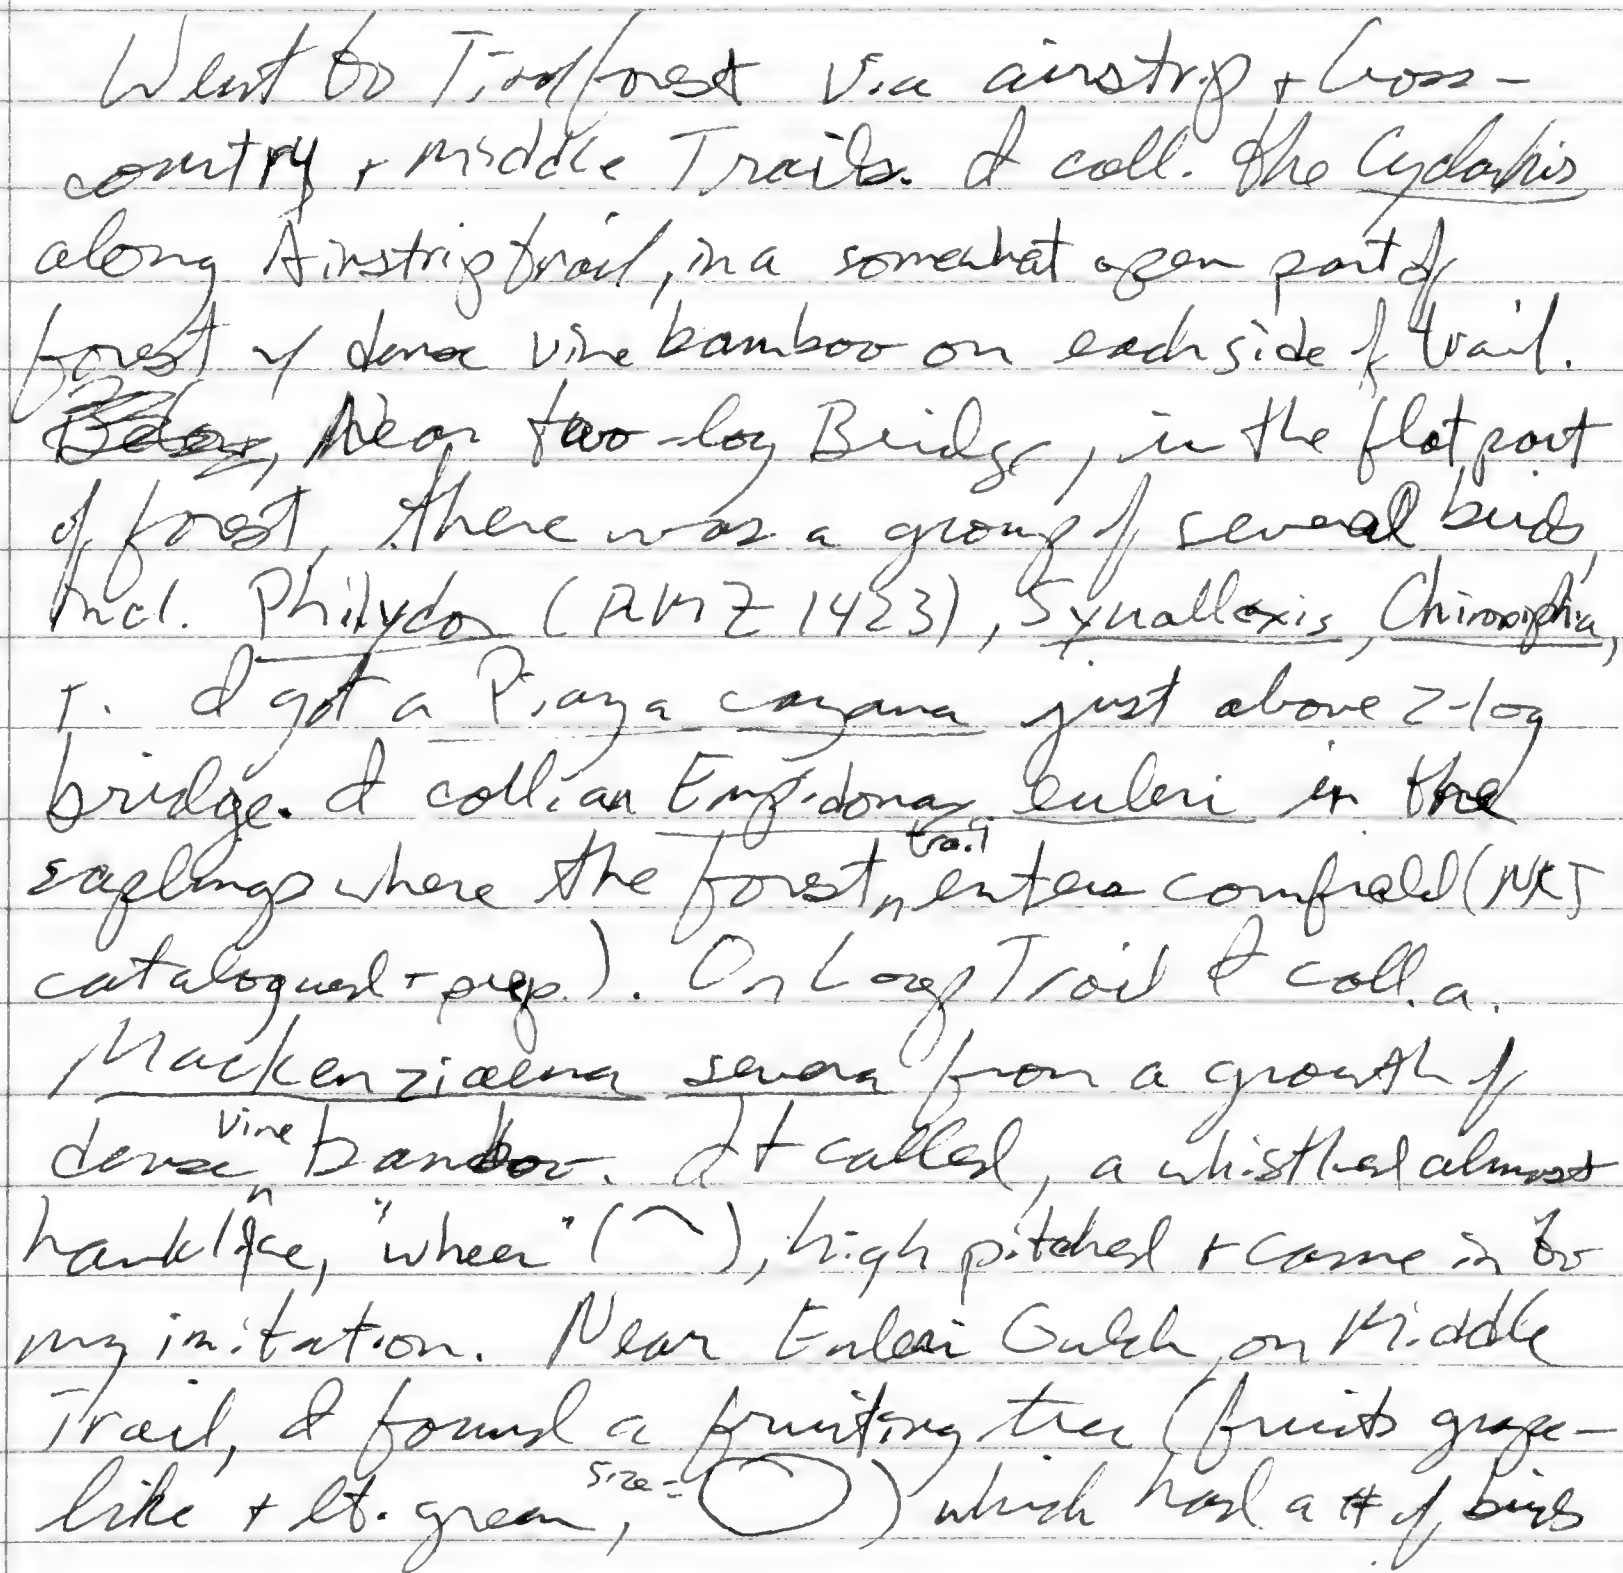 Went to Tirolforest via airstrip + Cross-
country + middle Trails. I coll. the Cyclarhis
along Airstrip trail, in a somewhat open part of
forest w/ dense vine bamboo on each side of trail.
Near two-log Bridge, in the flat part
of forest, there was a group of several birds,
incl. Philydor (RMZ 1423), Synallaxis, Chiroxiphia,
+. I got a Piaya cayana just above 2-log
bridge. I coll. an Empidonax euleri in the
saplings where the forest trail enters cornfield (NKJ
catalogued + prep.). On Loop Trail I coll. a
Mackenziaena severa from a growth of
dense vine bamboo. It called, a whistled almost
hawklike, "wheer" (⌒), high pitched + came in to
my imitation. Near Euleri Gulch, on Middle
Trail, I found a fruiting tree (fruits grape-
like + lt. green, size = ◯) which had a # of birds